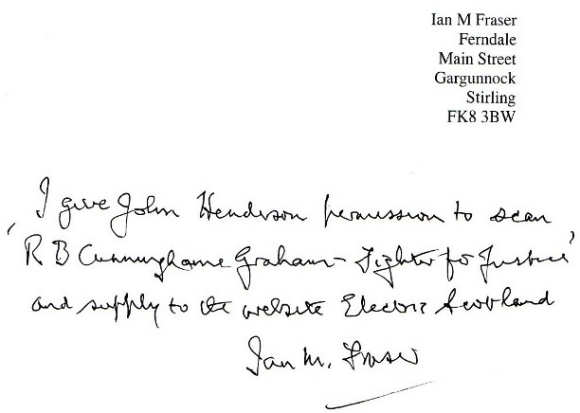 Ian M Fraser
Ferndale
Main Street
Gargunnock
Stirling
FK8 3BW
I give John Henderson permission to scan
'R B Cunninghame Graham - Fighter for Justice'
and supply to the website Electric Scotland
Ian M. Fraser